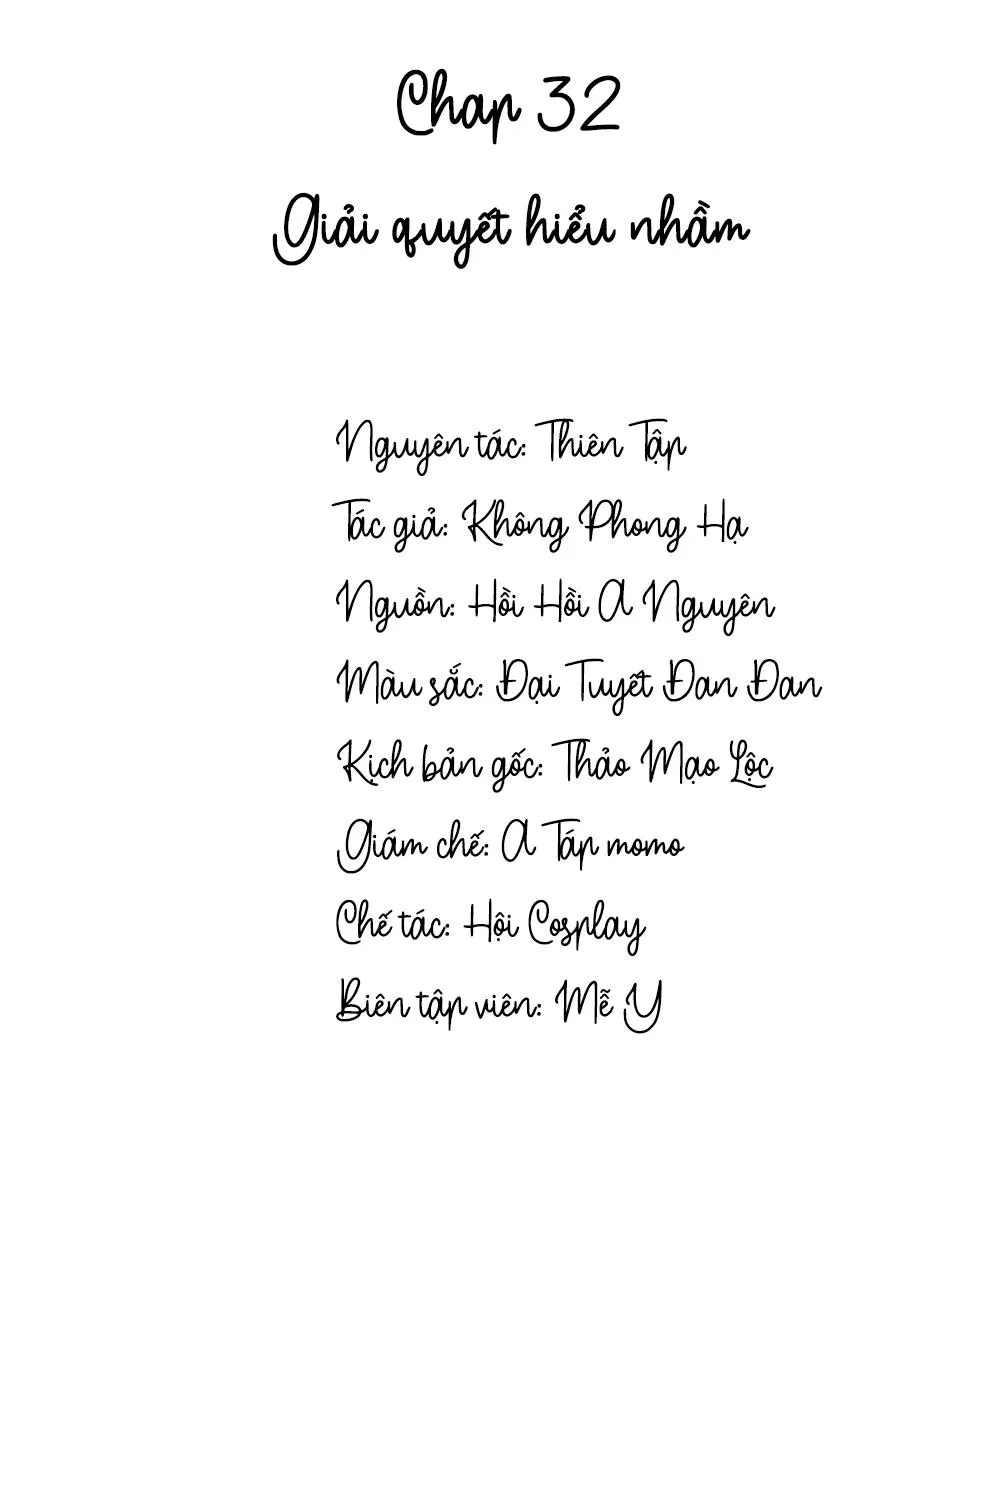 Chap 32
Giải quyết hiểu nhầm
Nguyên tác: Thiên Tập
Tác giả: Không Phong Hạ
Nguồn: Hồi Hồi A Nguyên
Màu sắc: Đại Tuyết Đan Đan
Kịch bản gốc: Thảo Mạo Lộc
Giám chế: A Táp momo
Chế tác: Hội Cosplay
Biên tập viên: Mễ Y